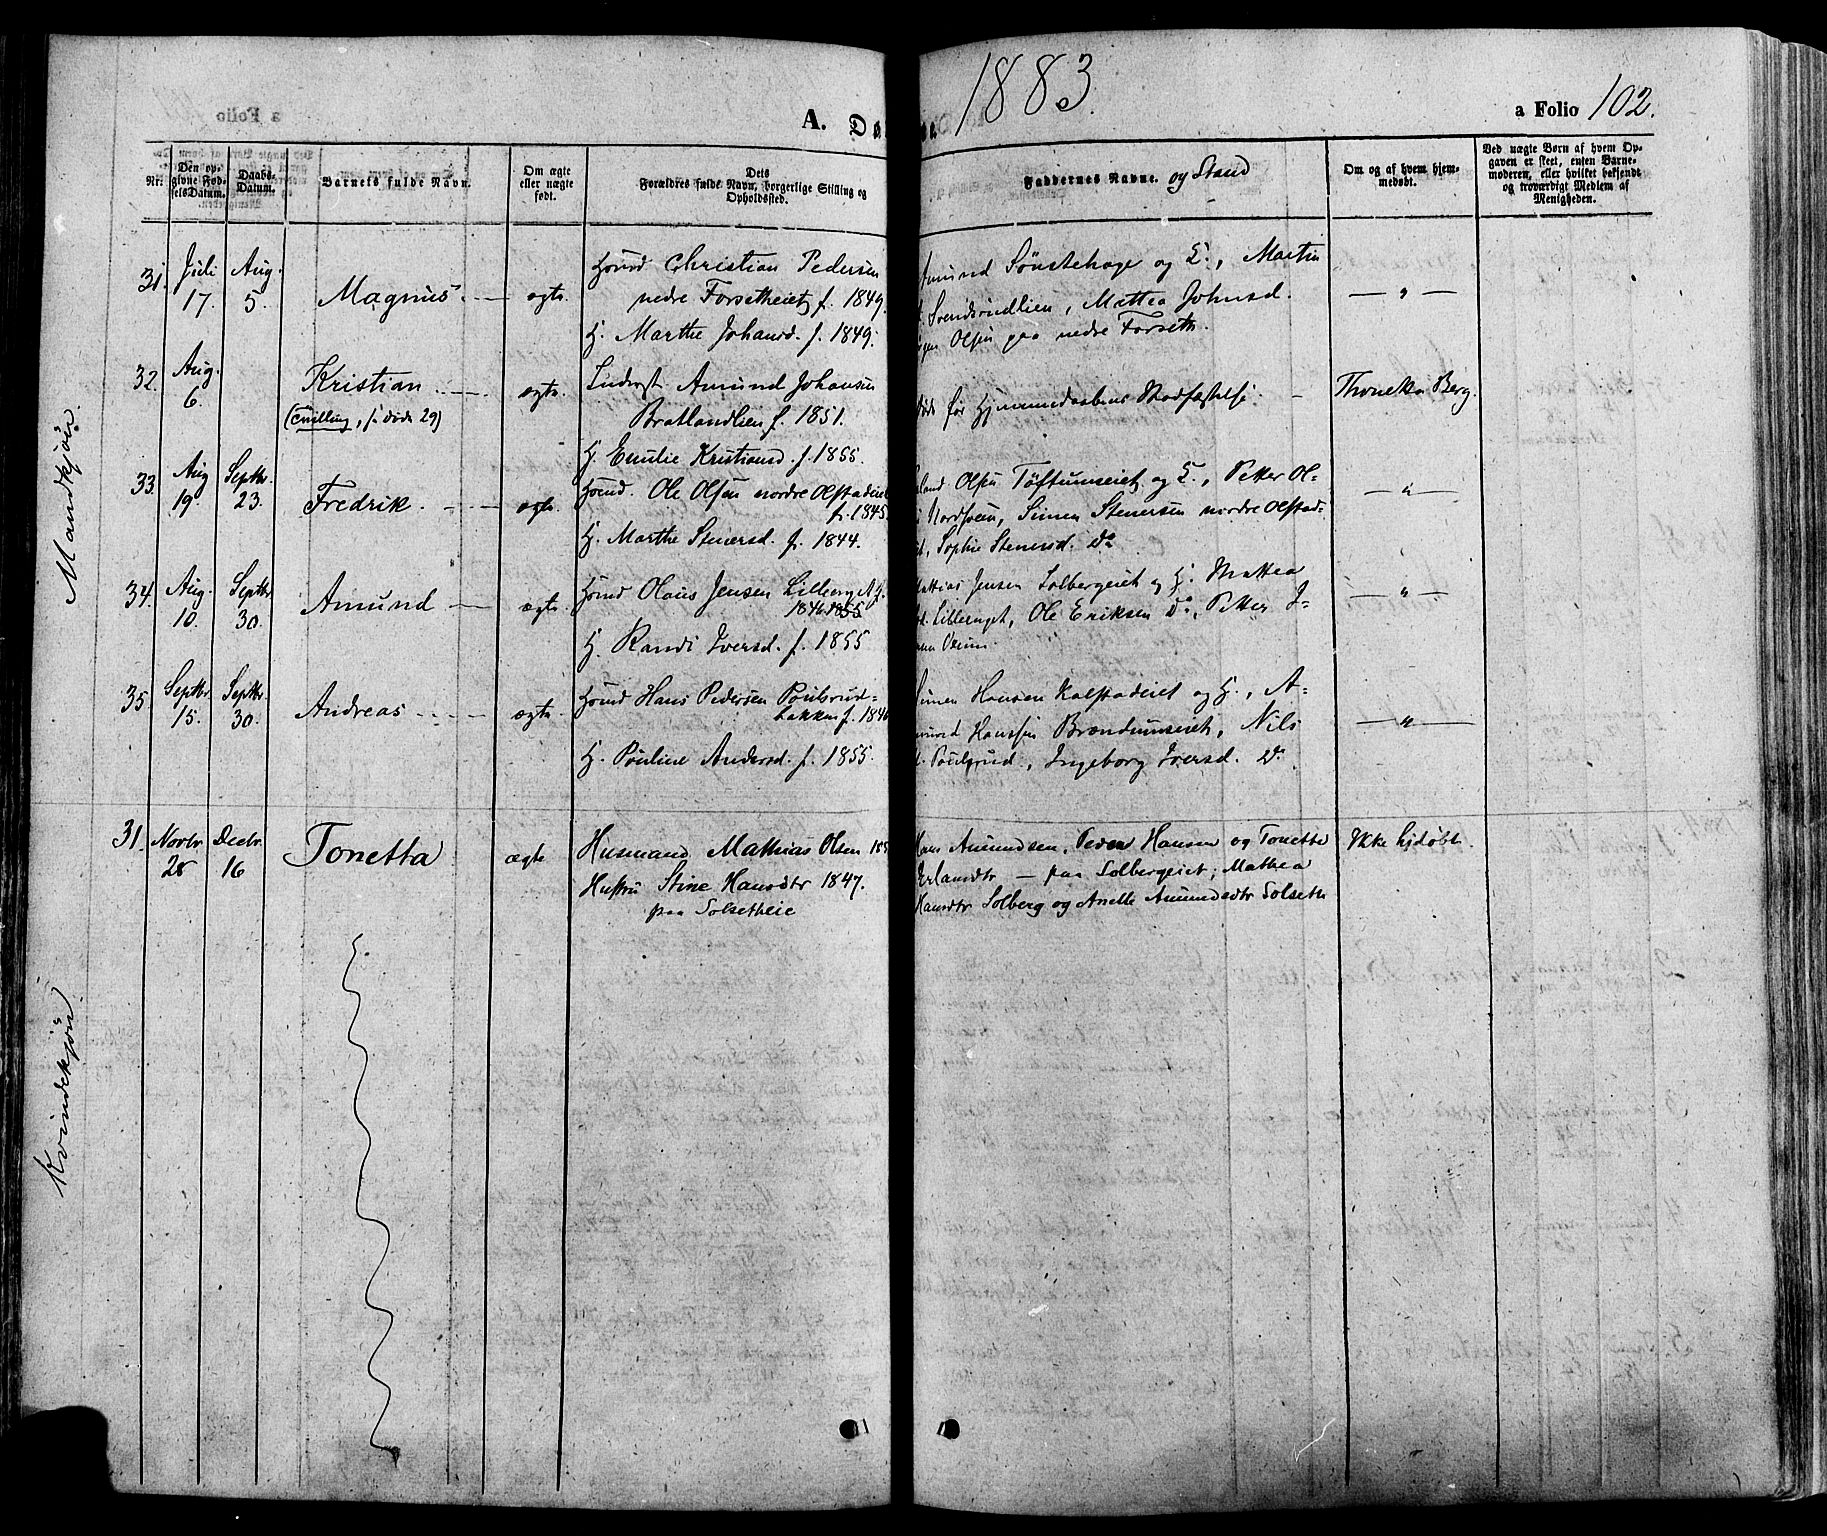 1883.
A. Dø
a Folio 102.
Nr.
Den op-
givne Fød-
selsDatum.
Daabs-
Datum.
Barnets fulde Navn.
Om ægte
eller uægte
født.
Dets
Forældres fulde Navn, borgerlige Stilling og
Opholdssted.
Faddernes Navne. og Stand
Om og af hvem hjem-
medøbt.
Ved uægte Børn af hvem Op-
gaven er skeet, enten Barne-
moderen, eller hvilket bekjendt
og troværdigt Medlem af
Menigheden.
Mandkjøn.
31. Juli 17. Aug. 5. Magnus. ægte. Christian Pedersen
nedre Forsetheiet f. 1849.
H. Marthe Johansd. f. 1849.
Amund Sønstehage og H., Martin
Svendsrudlien, Mattea Johnsd.
Olsen paa nedre Forseth.
— " —
32. Aug. 6. Kristian
(tvilling, f. døde 29)
ægte. Amund Johansen
Bratlandlien f. 1851.
H. Emilie Kristiansd. f. 1855.
før Hjemmedaabens Stadfæstelse. —
Thonetta Berg.
33. Aug 19. Septbr. 23. Fredrik. ægte. Hsmd. Ole Olsen nordre Olstadeiet
f. 1845.
H. Marthe Stenersd. f. 1844.
Olsen Tøftumseiet og H., Petter Ol-
Nordsveen, Simen Stenersen nordre Olstad-
Sophie Stenersd. Do
— " —
34. Aug. 10. Septbr 30. Amund ægte. Hsmd Olaus Jensen
1846 1855
H. Randi Iversd. f. 1855
Mathias Jensen Solbergeiet og H. Mattea
Lilleenget, Ole Eriksen Do, Petter J-
— " —
35. Septbr. 15. Septbr. 30. Andreas ægte. Hsmd Hans Pedersen Poulsrud-
bakken f. 1846
H. Pouline Andersd. f. 1855.
Simen Hansen Kalstadeiet og H., A-
mund Hanssen Brændumseiet, Nils
Poulsrud, Ingeborg Iversd. Do
— " —
Kvindekjøn.
31. Novbr. 28 Decbr. 16 Tonetta ægte Husmand Mathias Olsen
Hustru Stine Hansdtr 1847.
paa Solsetheie
Hans Amundsen, Peder Hansen og Tonette
Erlandsdtr — paa Solbergeiet; Mathea
Hansdtr Solberg og Anette Amundsdtr Solseth
Ikke hjdøbt.